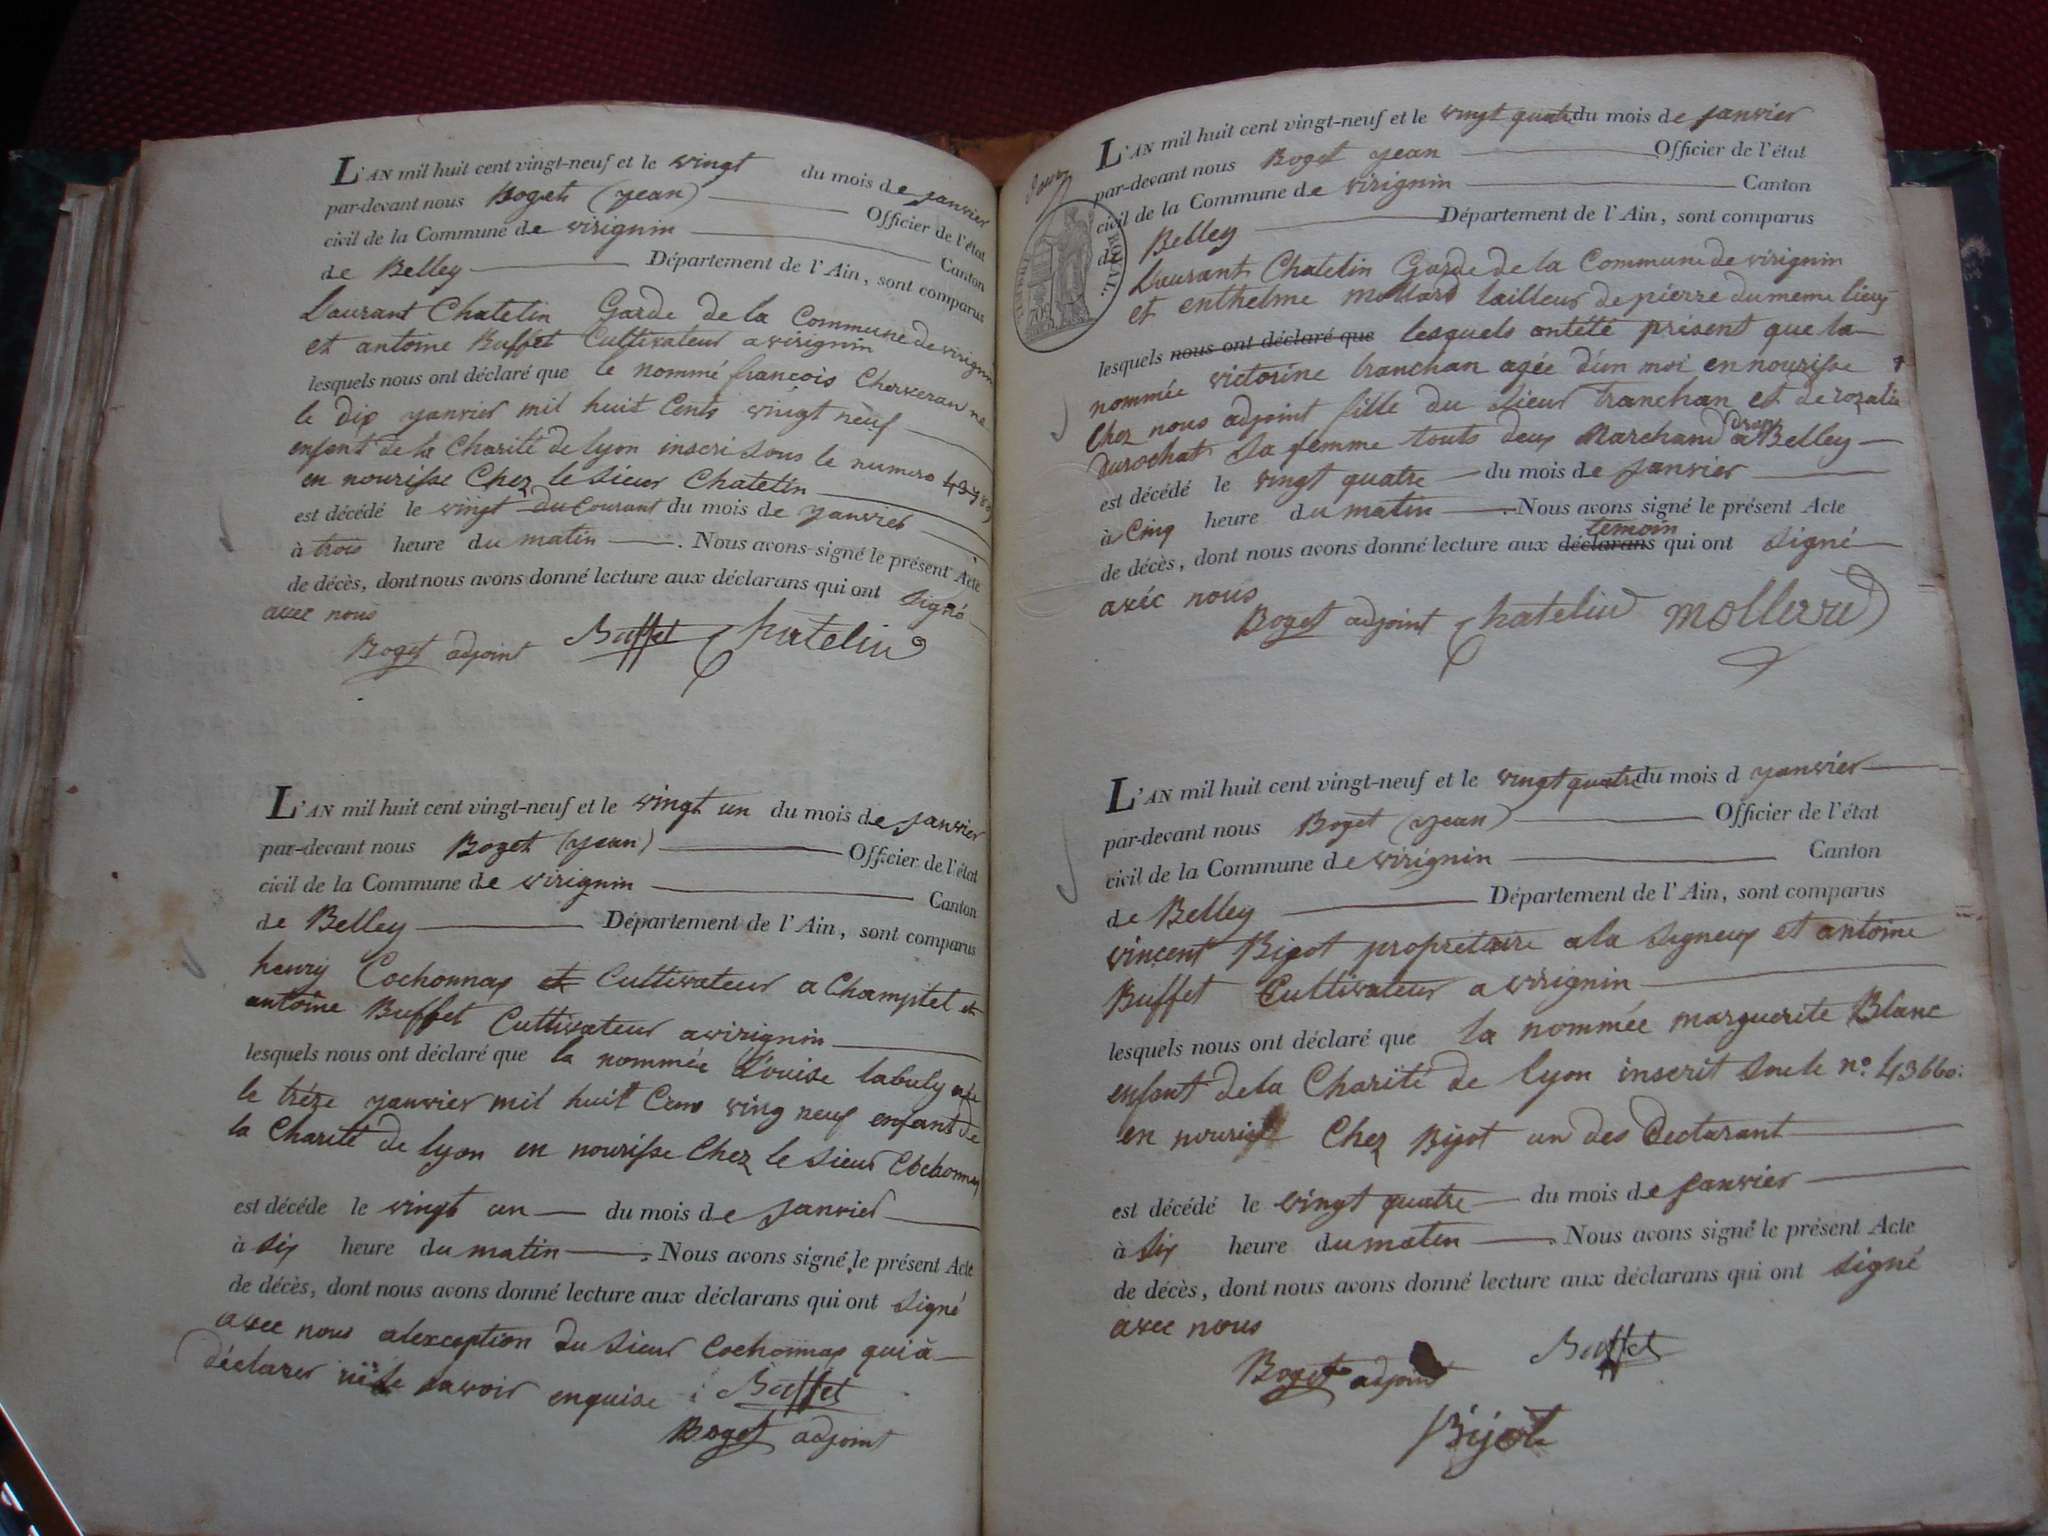 L'AN mil huit cent vingt-neuf et le vingt du mois de janvier
par-devant nous Boget (jean) Officier de l'état
civil de la Commune de virignin Canton
de Belley Département de l'Ain, sont comparus
Laurant Chatelin Garde de la Commune de virignin
et antoine Buffet Cultivateur a virignin
lesquels nous ont déclaré que le nommé françois né
le dix yanvier mil huit Cents vingt neuf
enfant de la Charité de lyon inscri sous le numero
en nourisse Chez le Sieur Chatelin
est décédé le vingt du Courant du mois de yanvier
à trois heure du matin . Nous avons signé le présent Acte
de décès, dont nous avons donné lecture aux déclarans qui ont signé
avec nous
Boget adjoint Buffet Chatelin
L'AN mil huit cent vingt-neuf et le vingt un du mois de janvier
par-devant nous Boget (jean) Officier de l'état
civil de la Commune de virignin Canton
de Belley Département de l'Ain, sont comparus
henry Cochonnap et Cultivateur a Champtel et
antoine Buffet Cultivateur a virignin
lesquels nous ont déclaré que la nommée Louise labuly née
le tréze yanvier mil huit Cens ving neuf enfant de
la Charité de lyon en nourisse Chez le Sieur Cochonnap
est décéde le vingt un du mois de Janvier
à Six heure du matin . Nous avons signé le présent Acte
de décès, dont nous avons donné lecture aux déclarans qui ont signé
avec nous alexception du Sieur Cochonnap qui à
déclarer ne le savoir enquise Buffet
Boget adjoint
L'AN mil huit cent vingt-neuf et le vingt quatre du mois de janvier
par-devant nous Boget jean Officier de l'état
civil de la Commune de virignin Canton
de Belley Département de l'Ain, sont comparus
ROYAL.
Laurant Chatelin Garde de la Commune de virignin
et enthelme Mollard tailleur de pierre du meme lieux
lesquels nous ont déclaré que lesquels ont été présent que la
nommée victorine tranchan agée d'un moi en nourisse
Chez nous adjoint fille du Sieur tranchan et de rozalie
durochat Sa femme touts deux Marchand drap a Belley
est décédé le vingt quatre du mois de Janvier
à Cinq heure du matin . Nous avons signé le présent Acte
de décès, dont nous avons donné lecture aux déclarans temoin qui ont signé
avec nous
Boget adjoint Chatelin Mollard
L'AN mil huit cent vingt-neuf et le vingt quatre du mois d yanvier
par-devant nous Boget (jean) Officier de l'état
civil de la Commune de virignin Canton
de Belley Département de l'Ain, sont comparus
vincent Bijot propriétaire a la Signeux et antoine
Buffet Cultivateur a virignin
lesquels nous ont déclaré que la nommée marguerite Blanc
enfant de la Charité de lyon inscrit Sous le n° 43660:
en nourisse Chez Bijot un des Declarant
est décédé le vingt quatre du mois de janvier
à Six heure du matin . Nous avons signé le présent Acte
de décès, dont nous avons donné lecture aux déclarans qui ont signé
avec nous
Boget adjoint Buffet
Bijot